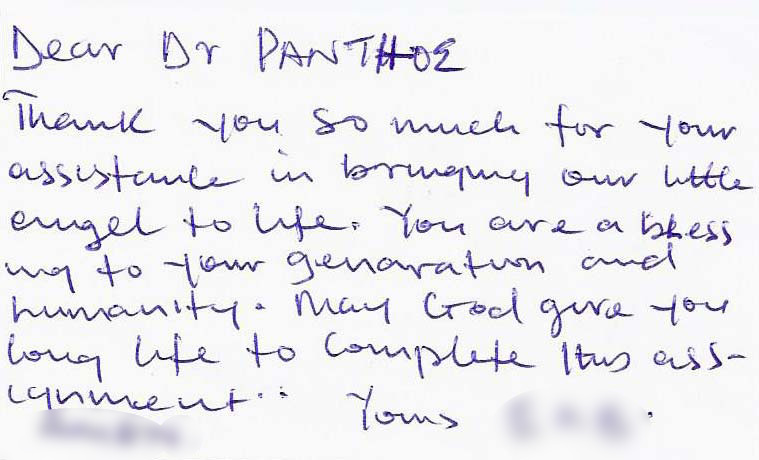 Dear Dr PANTHOE
Thank you so much for your
assistance in bringing our little
angel to life. You are a bless
ing to your genaration and
humanity. May God give you
long life to complete this ass-
ignment..
Yours